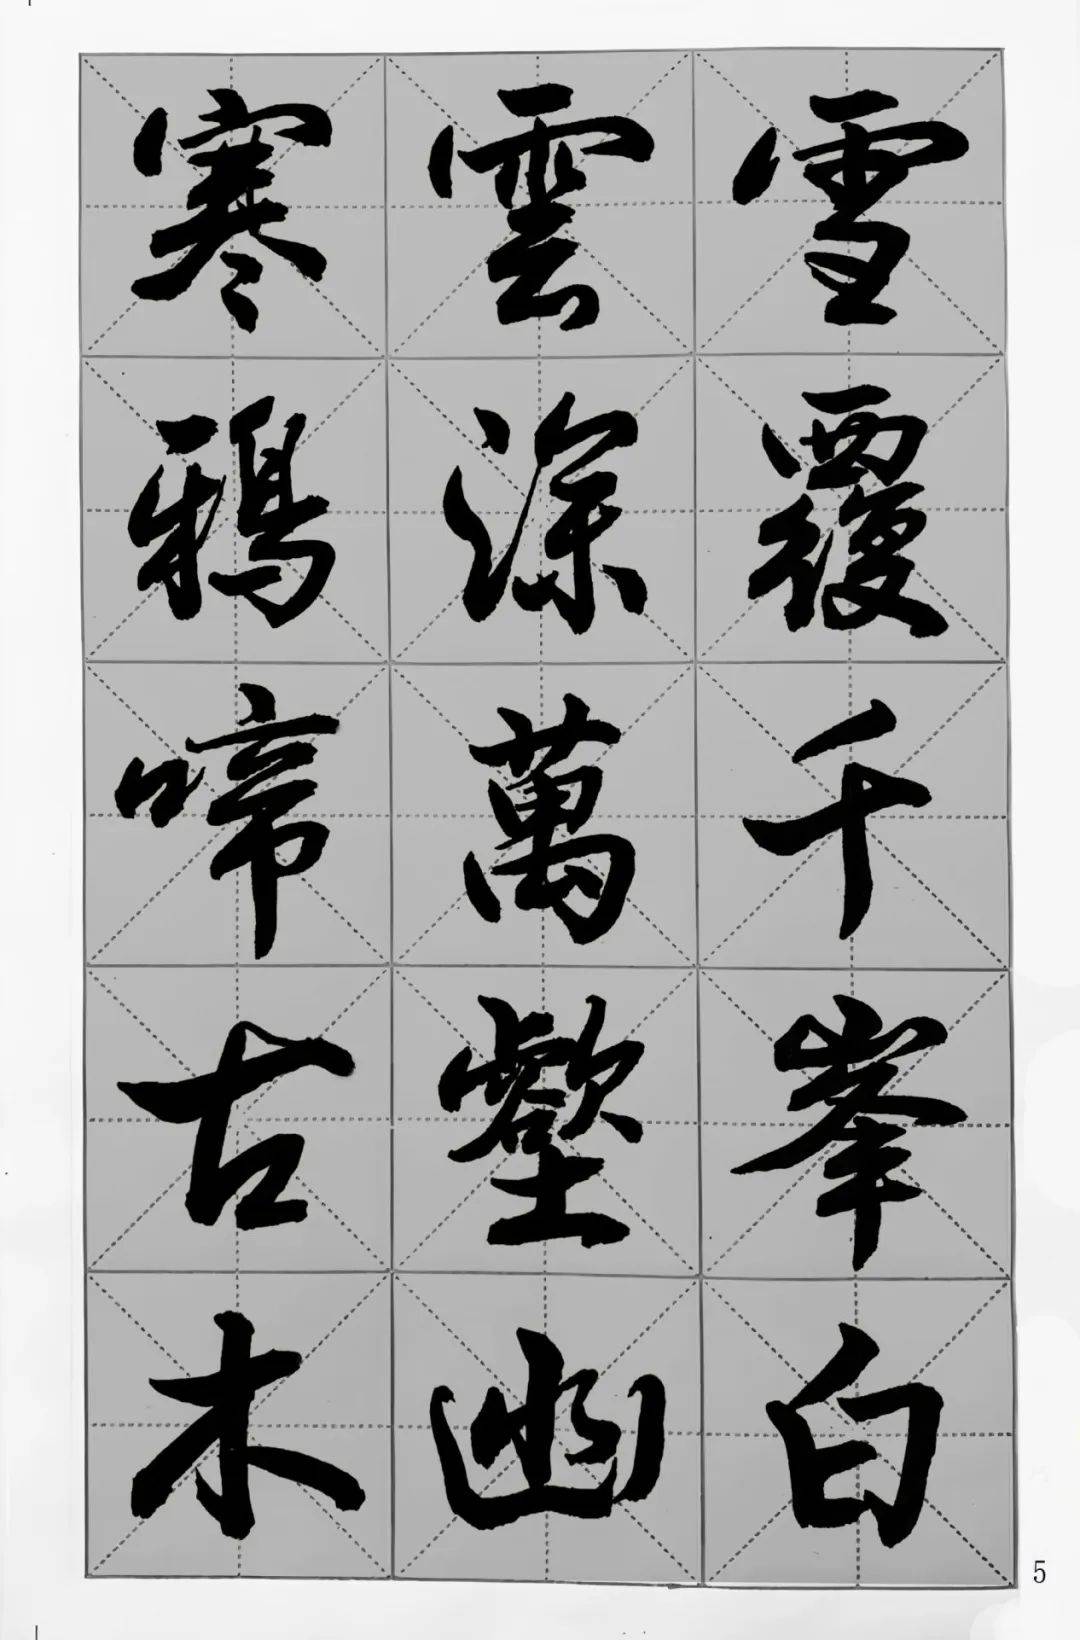 雪覆千峯白
雲深萬壑幽
寒鴉啼古木
5